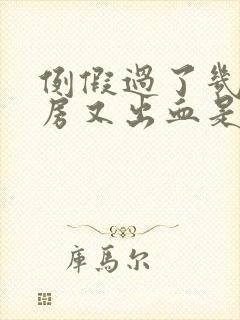 例假過了幾
房又出血是
庫馬尔